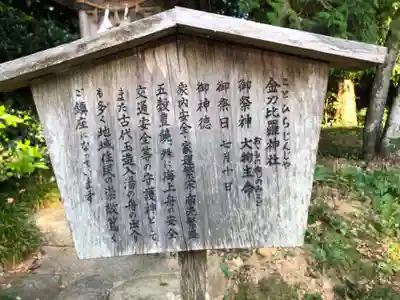 ことひらじんじゃ
金刀比羅神社
おおものぬしのみこと
御祭神 大物主命
御祭日 七月十日
御神徳
家内安全・家運繁栄・商売繁盛
五穀豊饒、殊に海上舟の安全
交通安全等の守護神として、
また古代玉造入湯の舟の出入
も多く地域住民の崇敬篤く
ご鎮座になっています